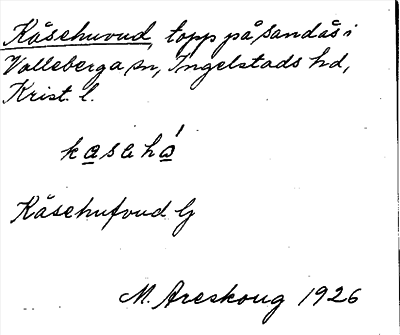 Kåsehuvud, topp på sandås i
Valleberga sn, Ingelstads hd,
Krist. l.
kasahá
Kåsehufvud Gj
M. Areskoug 1926